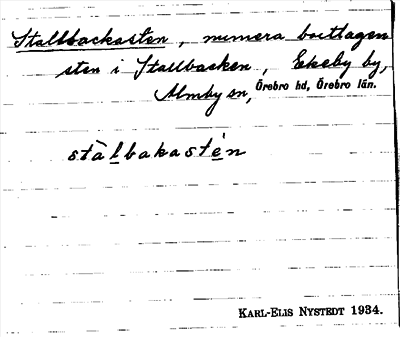 Stallbackasten, numera borttagen
sten i Stallbacken, Ekeby by,
Almby sn, Örebro hd, Örebro län.
stàlbakastén
KARL-ELIS NYSTEDT 1934.